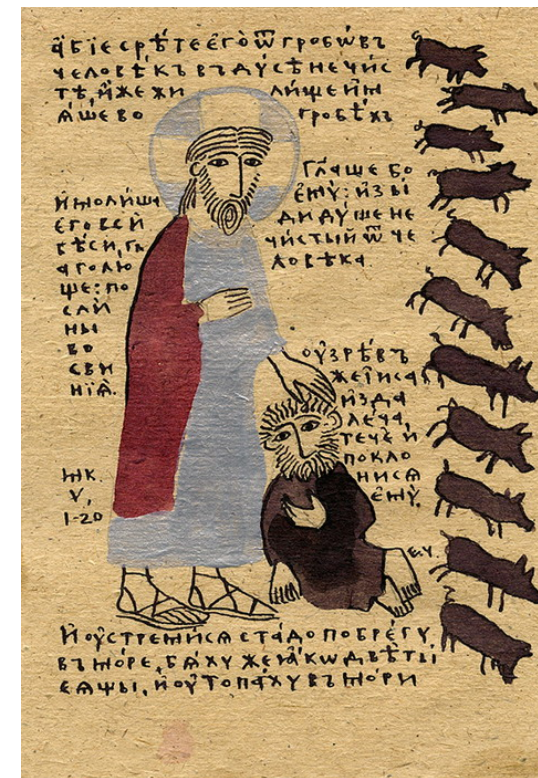 а҆́бїе срѣ́те є҆го̀ ѿ гробѡ́въ
человѣ́къ въ дꙋ́сѣ нечи́с
тѣ, и҆́же жи
ли́ще и҆мѧ́ше во гробѣ́хъ
Гл҃аше бо
є҆мꙋ̀: и҆зы́
ди дꙋ́ше не
чи́стый ѿ че
ловѣ́ка
И҆ моли́ша
є҆го̀ всѝ
бѣ́си, гл
аголю
ще: по
слѝ
ны
во
сви
нїѧ̑.
Оу҆зрѣ́въ
же і҆и҃са
и҆зда
ле́ча,
течѐ и҆
покло
ни́сѧ
є҆мꙋ̀.
Мк.
V,
1-20
Е.Ч.
И҆ оу҆стреми́сѧ ста́до по бре́гꙋ
въ мо́ре, бѧ́хꙋ же ꙗ҆́кѡ двѣ̀ ты́
сѧщы, и҆ оу҆топа́хꙋ въ мо́ри